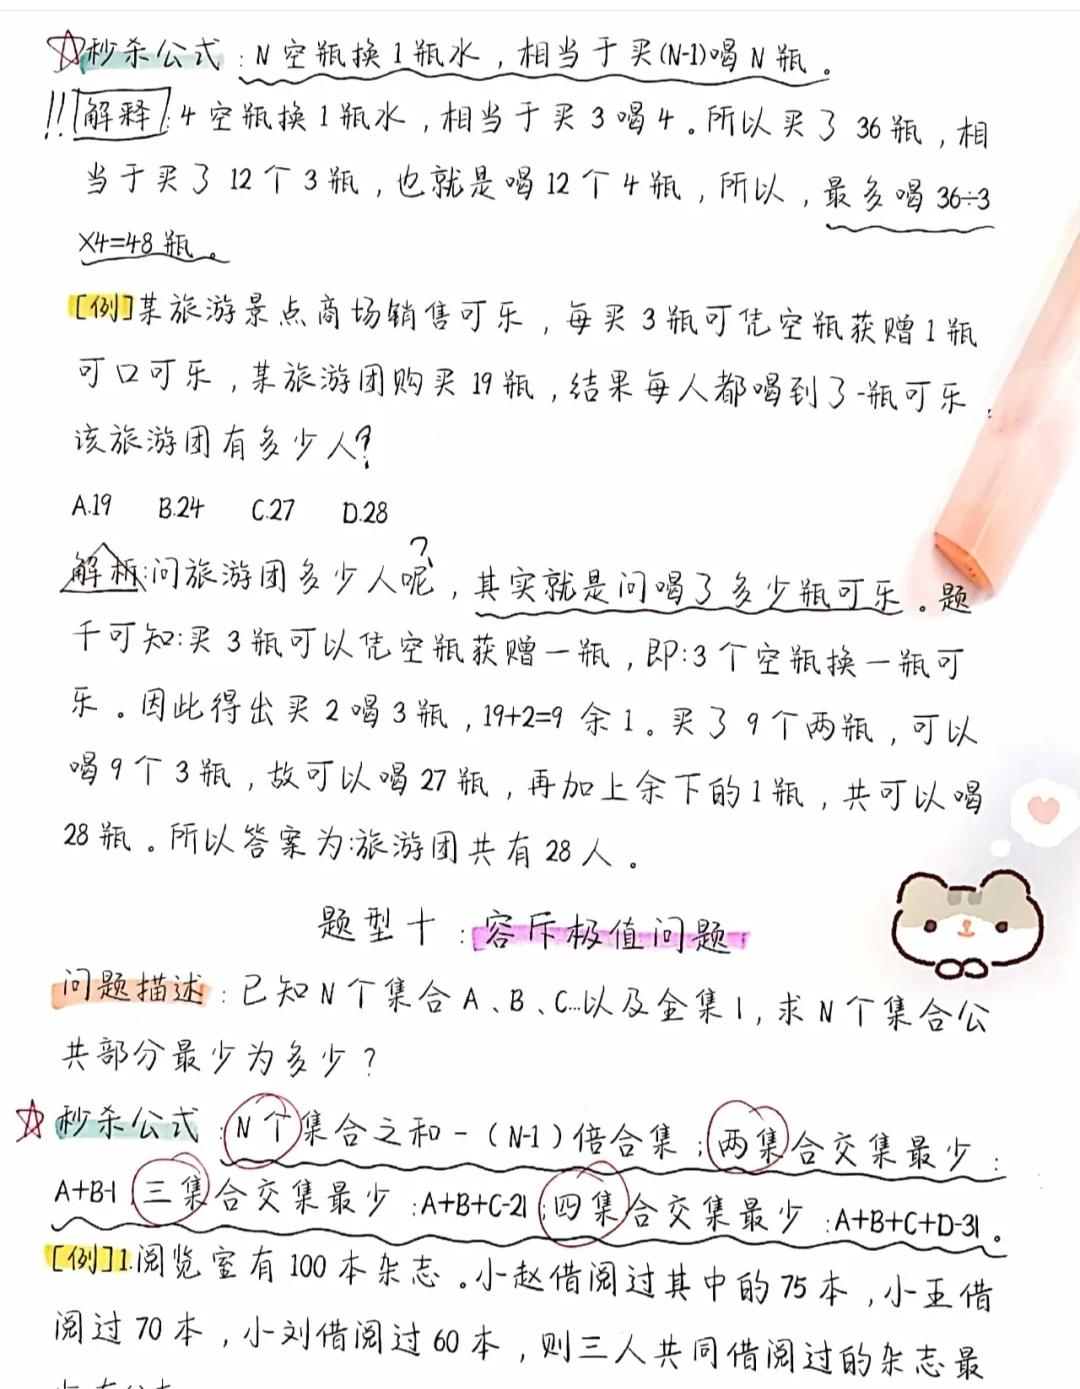 秒杀公式：N空瓶换1瓶水，相当于买(N-1)喝N瓶。
!!解释：4空瓶换1瓶水，相当于买3喝4。所以买了36瓶，相
当于买了12个3瓶，也就是喝12个4瓶，所以，最多喝36÷3
×4=48瓶。
[例]某旅游景点商场销售可乐，每买3瓶可凭空瓶获赠1瓶
可口可乐，某旅游团购买19瓶，结果每人都喝到了一瓶可乐，
该旅游团有多少人？
A.19 B.24 C.27 D.28
解析：问旅游团多少人呢，其实就是问喝了多少瓶可乐。题
千可知：买3瓶可以凭空瓶获赠一瓶，即：3个空瓶换一瓶可
乐。因此得出买2喝3瓶，19+2=9余1。买了9个两瓶，可以
喝9个3瓶，故可以喝27瓶，再加上余下的1瓶，共可以喝
28瓶。所以答案为：旅游团共有28人。
题型十：容斥极值问题：
问题描述：已知N个集合A、B、C...以及全集I，求N个集合公
共部分最少为多少？
秒杀公式：N个集合之和-（N-1）倍合集；两集合交集最少：
A+B-I；三集合交集最少：A+B+C-2I；四集合交集最少：A+B+C+D-3I。
[例]1.阅览室有100本杂志。小赵借阅过其中的75本，小王借
阅过70本，小刘借阅过60本，则三人共同借阅过的杂志最